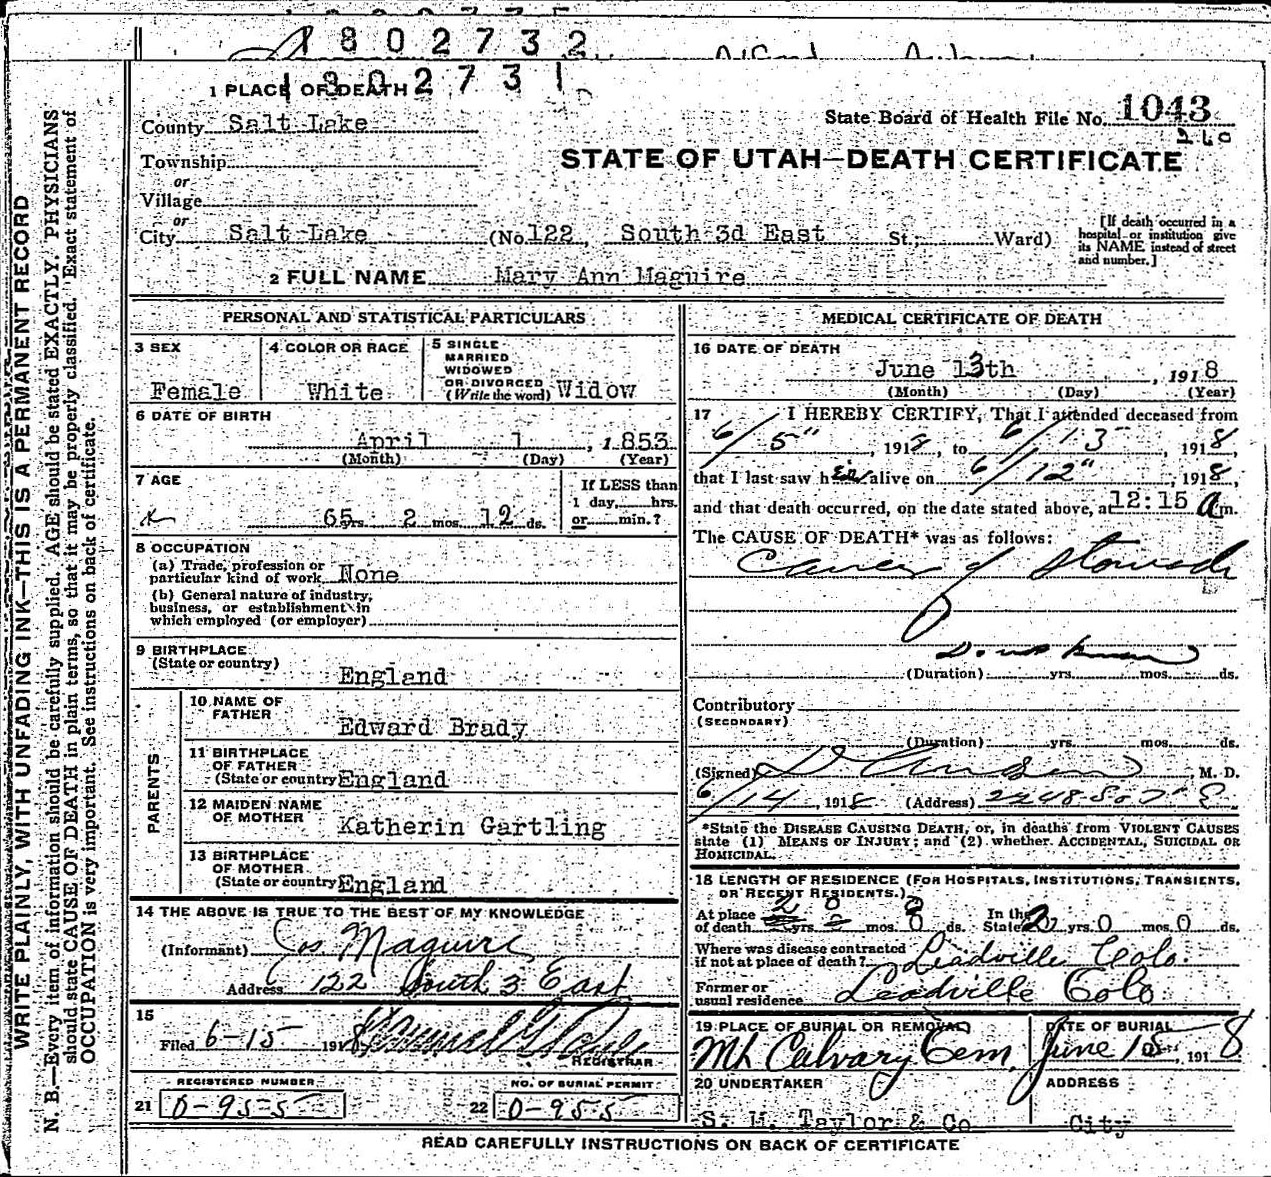 1802732
1802731
1 PLACE OF DEATH
County Salt Lake
State Board of Health File No. 1043
Township
or
Village
or
STATE OF UTAH—DEATH CERTIFICATE
City Salt Lake (No. 122 South 3d East St.; Ward)
[If death occurred in a
hospital or institution give
its NAME instead of street
and number.]
2 FULL NAME Mary Ann Maguire
PERSONAL AND STATISTICAL PARTICULARS
3 SEX
Female
4 COLOR OR RACE
White
5 SINGLE
MARRIED
WIDOWED
OR DIVORCED
(Write the word) Widow
6 DATE OF BIRTH
April 1, 1853
(Month) (Day) (Year)
7 AGE
65 yrs. 2 mos. 12 ds.
If LESS than
1 day, hrs.
or min.?
8 OCCUPATION
(a) Trade, profession or
particular kind of work None
(b) General nature of industry,
business, or establishment in
which employed (or employer)
9 BIRTHPLACE
(State or country)
England
PARENTS
10 NAME OF
FATHER
Edward Brady
11 BIRTHPLACE
OF FATHER
(State or country) England
12 MAIDEN NAME
OF MOTHER
Katherin Gartling
13 BIRTHPLACE
OF MOTHER
(State or country) England
14 THE ABOVE IS TRUE TO THE BEST OF MY KNOWLEDGE
(Informant) Jos Maguire
Address 122 South 3 East
15
Filed 6-15 1918
REGISTRAR
REGISTERED NUMBER
21 0-955
NO. OF BURIAL PERMIT
22 0-955
MEDICAL CERTIFICATE OF DEATH
16 DATE OF DEATH
June 13th, 1918
(Month) (Day) (Year)
17 I HEREBY CERTIFY, That I attended deceased from
6/5", 1918, to 6/13, 1918,
that I last saw her alive on 6/12", 1918,
and that death occurred, on the date stated above, at 12:15 a m.
The CAUSE OF DEATH* was as follows:
Cancer of Stomach
(Duration) yrs. mos. ds.
Contributory
(SECONDARY)
(Duration) yrs. mos. ds.
(Signed) M. D.
6/14, 1918 (Address)
*State the DISEASE CAUSING DEATH, or, in deaths from VIOLENT CAUSES
state (1) MEANS OF INJURY; and (2) whether ACCIDENTAL, SUICIDAL OR
HOMICIDAL.
18 LENGTH OF RESIDENCE (FOR HOSPITALS, INSTITUTIONS, TRANSIENTS,
OR RECENT RESIDENTS.)
At place
of death yrs. mos. ds. In the
State yrs. 0 mos. 0 ds.
Where was disease contracted
if not at place of death? Leadville Colo.
Former or
usual residence Leadville Colo
19 PLACE OF BURIAL OR REMOVAL
Mt Calvary Cem.
DATE OF BURIAL
June 15, 1918
20 UNDERTAKER
S. M. Taylor & Co
ADDRESS
City
READ CAREFULLY INSTRUCTIONS ON BACK OF CERTIFICATE
WRITE PLAINLY, WITH UNFADING INK—THIS IS A PERMANENT RECORD
N. B.—Every item of information should be carefully supplied. AGE should be stated EXACTLY. PHYSICIANS
should state CAUSE OF DEATH in plain terms, so that it may be properly classified. Exact statement of
OCCUPATION is very important. See instructions on back of certificate.